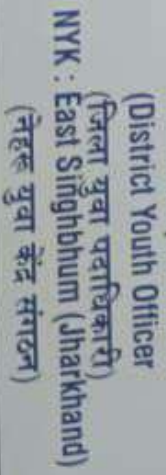 (District Youth Officer
(जिला युवा पदाधिकारी)
NYK : East Singhbhum (Jharkhand)
(नेहरू युवा केंद्र संगठन)